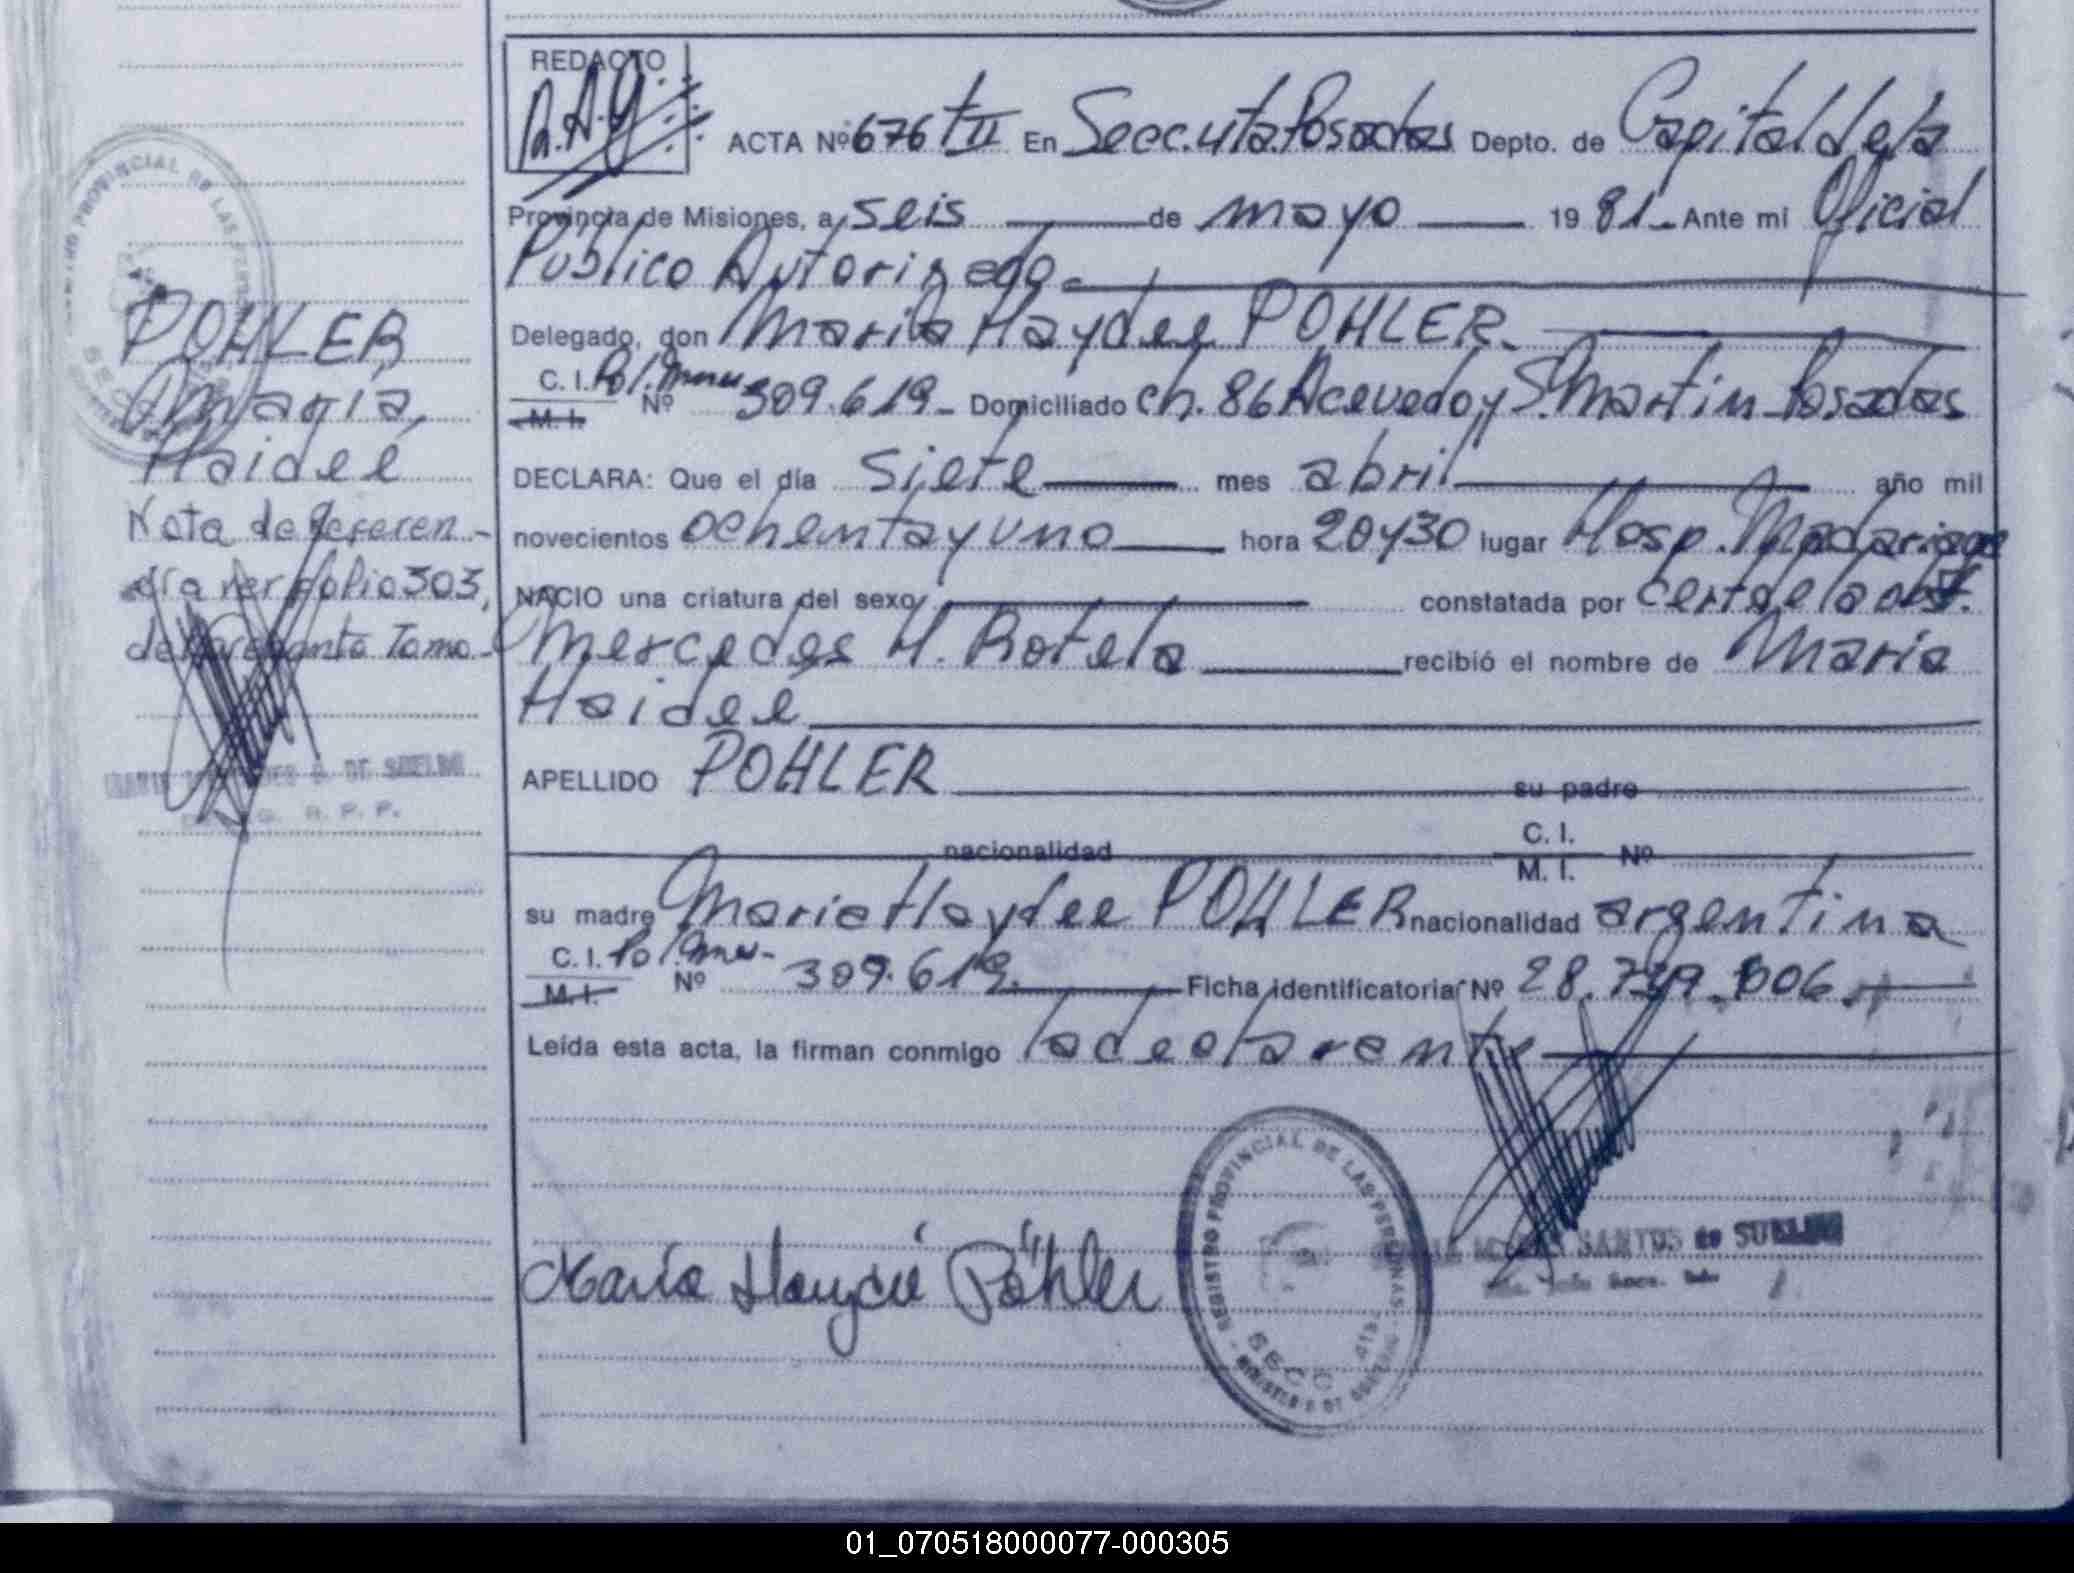 REDACTO
R.A.G.
ACTA Nº 676 TII En Secc. 4ta. Posadas Depto. de Capital de la
Provincia de Misiones, a seis de mayo 1981 Ante mi Oficial
Publico Autorizado
Delegado, don Maria Haydee POHLER.
C. I. Pol. Mnes Nº 309.619 Domiciliado Ch. 86 Acevedo y S. Martin Posadas
M. I.
DECLARA: Que el día siete mes abril año mil
novecientos ochenta y uno hora 20 y 30 lugar Hosp. Madariaga
NACIO una criatura del sexo constatada por cert de la obst.
Mercedes H. Rotela recibió el nombre de Maria
Haideé
APELLIDO POHLER su padre
nacionalidad C. I. Nº
M. I.
su madre Maria Haydee POHLER nacionalidad argentina
C. I. Pol. Mnes Nº 309.619. Ficha identificatoria Nº 28.729.006
M. I.
Leída esta acta, la firman conmigo la declarante
María Haydeé Pöhler
REGISTRO PROVINCIAL DE LAS PERSONAS
SECC 4ta
SANTOS de SUELDO
POHLER
Maria
Haideé
Nota de Referen-
cia ver folio 303,
de Tomo
DE SUELDO
R. P. P.
01_070518000077-000305